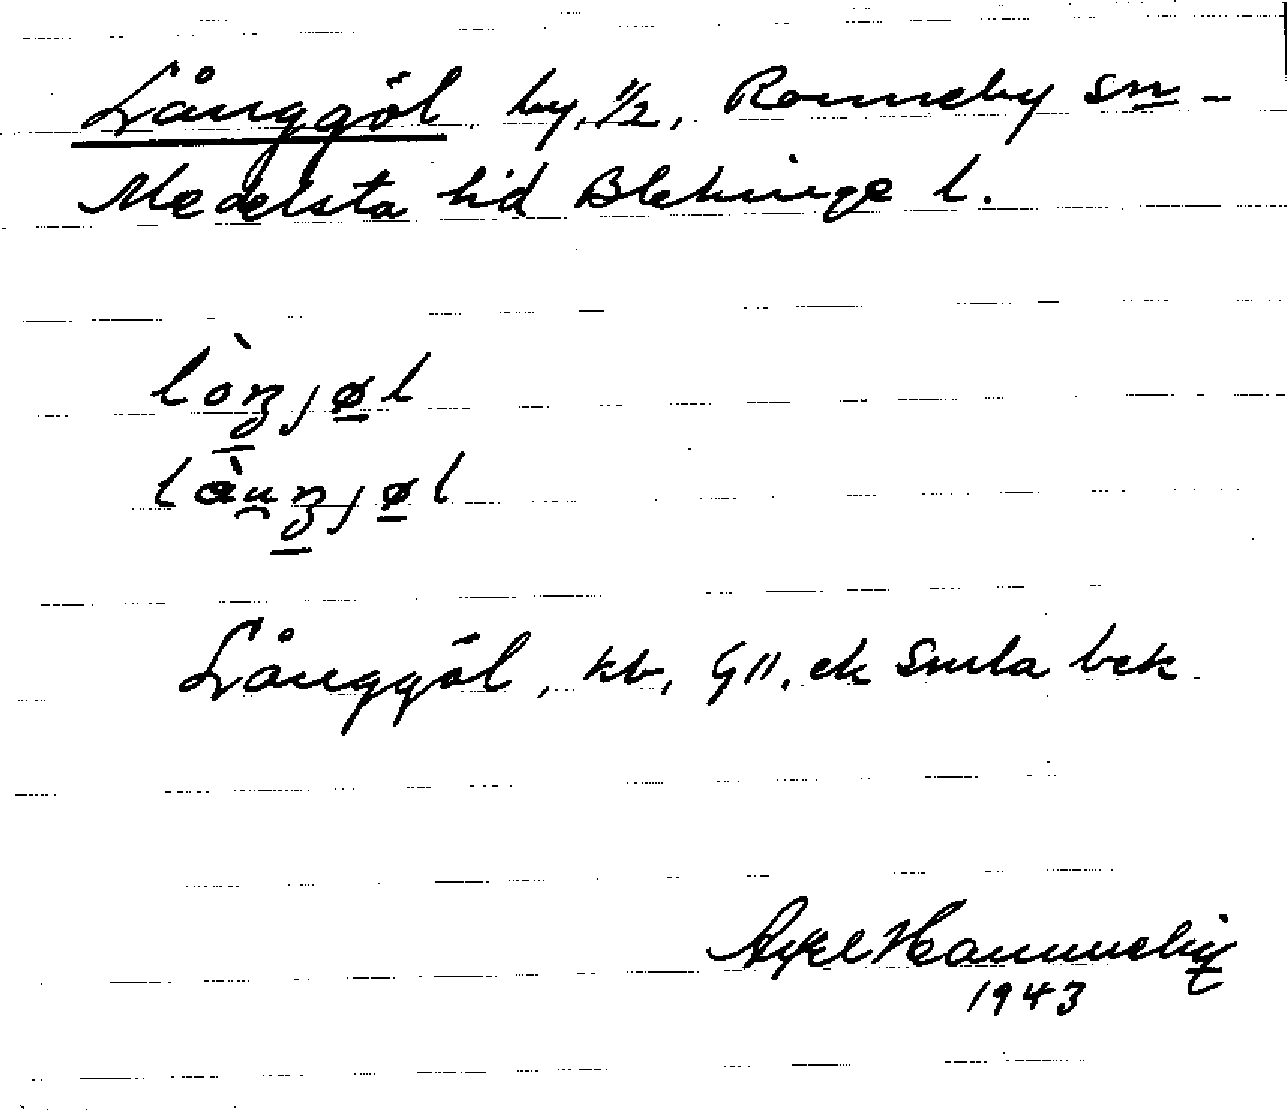 Långgöl by, 1/2, Ronneby sn -
Medelsta hd Blekinge l.
lòŋjøl
làu̯ŋjøl
Långgöl, kb, G11, ek Smla bek
Axel
1943